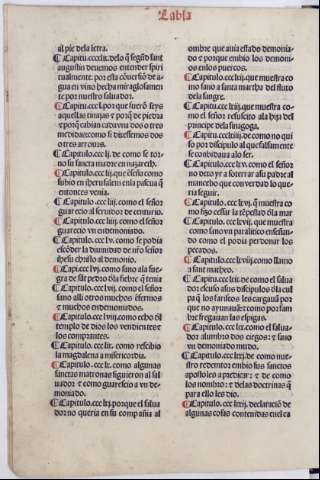 Tabla
al pie dela letra.
¶ Capitu. cccxlix. delo q̃ segũd sant
augustin deuemos entender spiri
tualmente. por esta cõuersiõ de a-
gua en vino hecha miraglosamen
te por nuestro saluador.
¶ Capitu. ccc l. por que fuerõ seys
aquellas tinajas ⁊ porq̃ de piedra
⁊ porq̃ cabian cada vna dos o tres
medidas: como si dixessemos dos
o tres arroues.
¶ Capitulo. ccc lj. de como se tor-
no su sancta madre en nazareth.
¶ Capitulo. ccc lij. que el señor como
subio en iherusalem enla pascua q̃
entonces venia.
¶ Capitulo. ccc liij. como el señor
guarecio al seruidor de centurio
¶ Capitulo. ccc liiij. como el señor
guarecio vn endemoniado.
¶ Capitulo. ccc lv. como se podia
escõder la diuinidad de nr̃o señor
ihesu christo al demonio.
¶ Capi. ccc lvj. como sano ala sue-
gra de sãt pedro õla fiebre q̃ tenia
¶ Capitulo. ccc lvij. como el señor
sano alli otros muchos ẽfermos
⁊ muchos endemoniados.
¶ Capitulo. ccc lviij. como echo ðl
templo de dios los vendientes ⁊
los comprantes.
¶ Capitulo. ccc lix. como rescibio
la magdalena a misericordia.
¶ Capitulo. ccc lx. como algunas
sanctas matronas siguieron al sal-
uador ⁊ como guarescio a vn de-
moniado.
¶ Capitulo. ccc lxj. porque el salua
dor no queria en su compañia al
ombre que auia estado demonia-
do ⁊ porque embio los demoni-
os enlos puercos.
¶ Capitulo. ccc lxij. que muestra co
mo sano a santa martha del fluxo
dela sangre.
¶ Capitulo. ccc lxiij. que muestra co-
mo el señor resuscito ala hija del
principe dela sinagoga.
¶ Capitulo. ccc lxiiij. de como no qui
so por discipulo al que falsamente
se conbidaua alo ser.
¶ Capitulo. ccc lxv. como el señor
no dexo yr a soterrar asu padre al
mancebo que con verdad lo que-
ria seguir.
¶ Capitulo. ccc lxvj. q̃ muestra co
mo fizo cessar la tẽpestad ðla mar
¶ Capitulo. ccc lxvij. que muestra
como sano vn paralitico enseñan-
do como el podia perdonar los
pecados.
¶ Capitulo. ccc lxviij. como llamo
a sant matheo.
¶ Capitulo. ccc lxix. de como el salua
dor escuso asus discipulos ðla cul
pa q̃ los fariseos les cargauã por
que no ayunauã: ⁊ como por fam
bre fregauan las espigas.
¶ Capitulo. ccc lxx. como el salua-
dor alumbro dos ciegos: ⁊ sano
vn demoniado mudo.
¶ Capitulo. ccc lxxj. de como nue-
stro redemptor embio sus sanctos
apostoles a predicar: ⁊ de como
los nombro: ⁊ delas doctrinas q̃
para ello les dio.
¶ Capitulo. ccc lxxij. declaraciõ de
algunas cosas contenidas enel ca